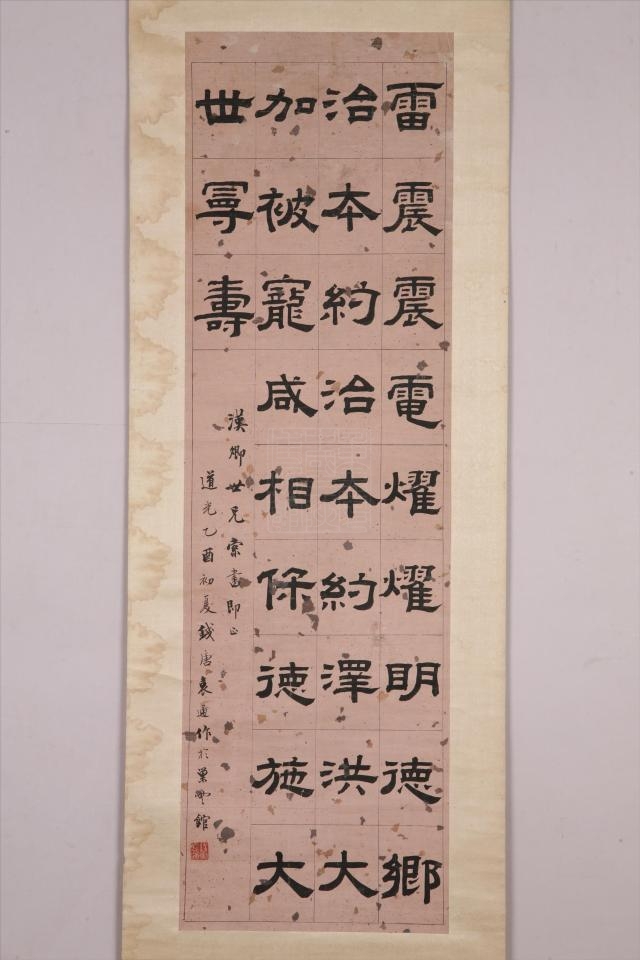 雷震震電燿燿明德鄉
治本約治本約澤洪大
加被寵咸相保德施大
世曼壽
漢卿世兄索書即正
道光乙酉初夏錢唐袁通作於畢雲館